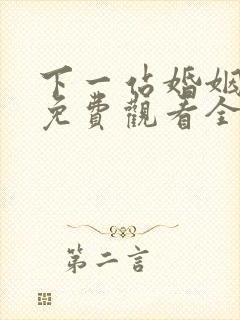 下一站婚姻
免費觀看全
第二言